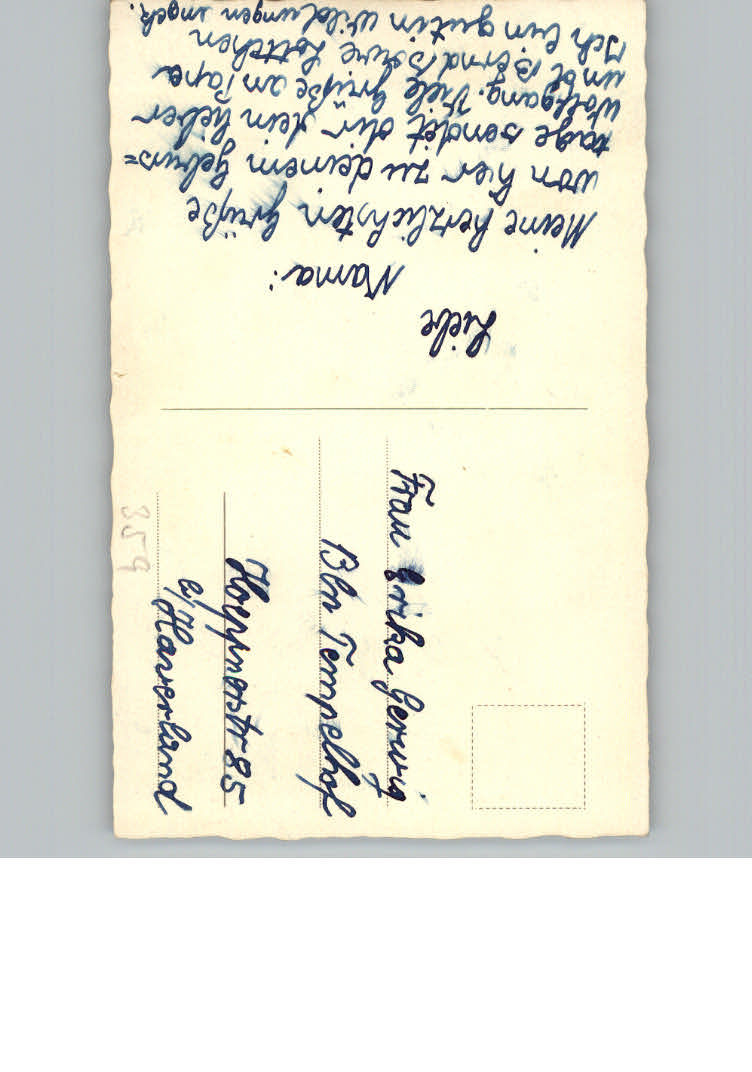 Liebe
Mama!
Meine herzlichsten Grüße
von hier zu deinem geburs=
tage sendet dir dein lieber
Wolfgang. Viele grüße an Papa
und Bernd Lottchen
Ich bin gut in wildungen angek.
Frau Erika Gerwig
Bln Tempelhof
Hoeppnerstr 85
b/Haverland
359